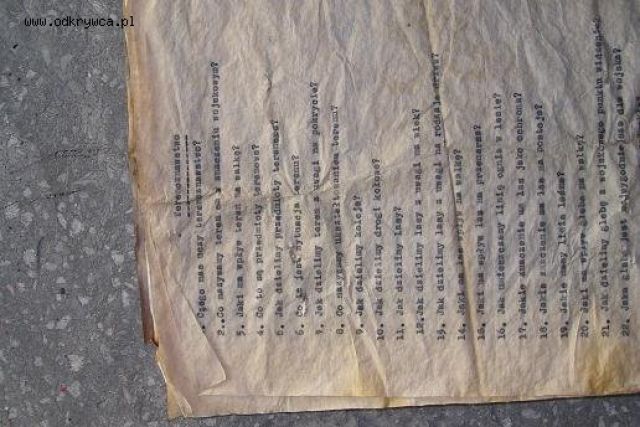 www.odkrywca.pl
Terenoznawstwo
1. Czego nas uczy terenoznawstwo?
2. Co nazywamy terenem w znaczeniu wojskowym?
3. Jaki ma wpływ teren na walkę?
4. Co to są przedmioty terenowe?
5. Jak dzielimy przedmioty terenowe?
6. Co to jest sytuacja terenu?
7. Jak dzielimy teren z uwagi na pokrycie?
8. Co nazywamy ukształtowaniem terenu?
9. Jak dzielimy koleje?
10. Jak dzielimy drogi kołowe?
11. Jak dzielimy lasy?
12. Jak dzielimy lasy z uwagi na wiek?
13. Jak dzielimy lasy z uwagi na rodzaje drzew?
14. Jaki ma las wpływ na walkę?
15. Jaki ma wpływ las na przemarsz?
16. Jak umieszczamy linię ognia w lesie?
17. Jakie znaczenie ma las jako ochrona?
18. Jakie znaczenie ma las na postoju?
19. Jakie mamy
20. Jaki ma wpływ gleba na walkę?
21. Jak dzielimy glebę z wojskowego punktu widzenia?
22. Jaka gleba jest najwygodniejsza dla wojska?